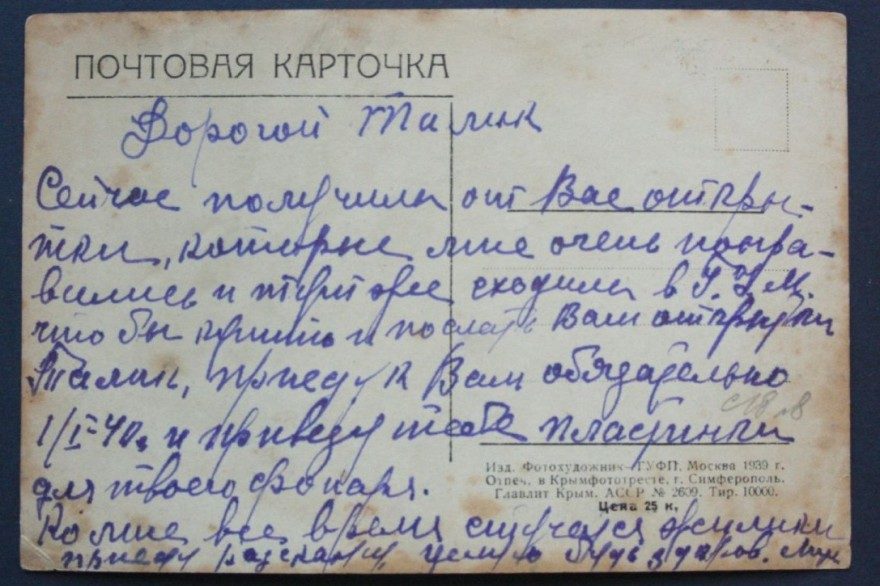 ПОЧТОВАЯ КАРТОЧКА
Дорогой Талик
Сейчас получила от Вас откры-
тки, которые мне очень понра-
вились и тут же сходила в
что бы купить и послать Вам открытки
Талик, приеду к Вам обязательно
1/I-40г. и привезу тебе пластинки
для твоего фонаря.
Ко мне все время стучатся
приеду расскажу, целую будь здоров.
с18 л8
Изд. Фотохудожник—ГУФП. Москва 1939 г.
Отпеч. в Крымфототресте, г. Симферополь.
Главлит Крым. АССР № 2609. Тир. 10000.
Цена 25 к.